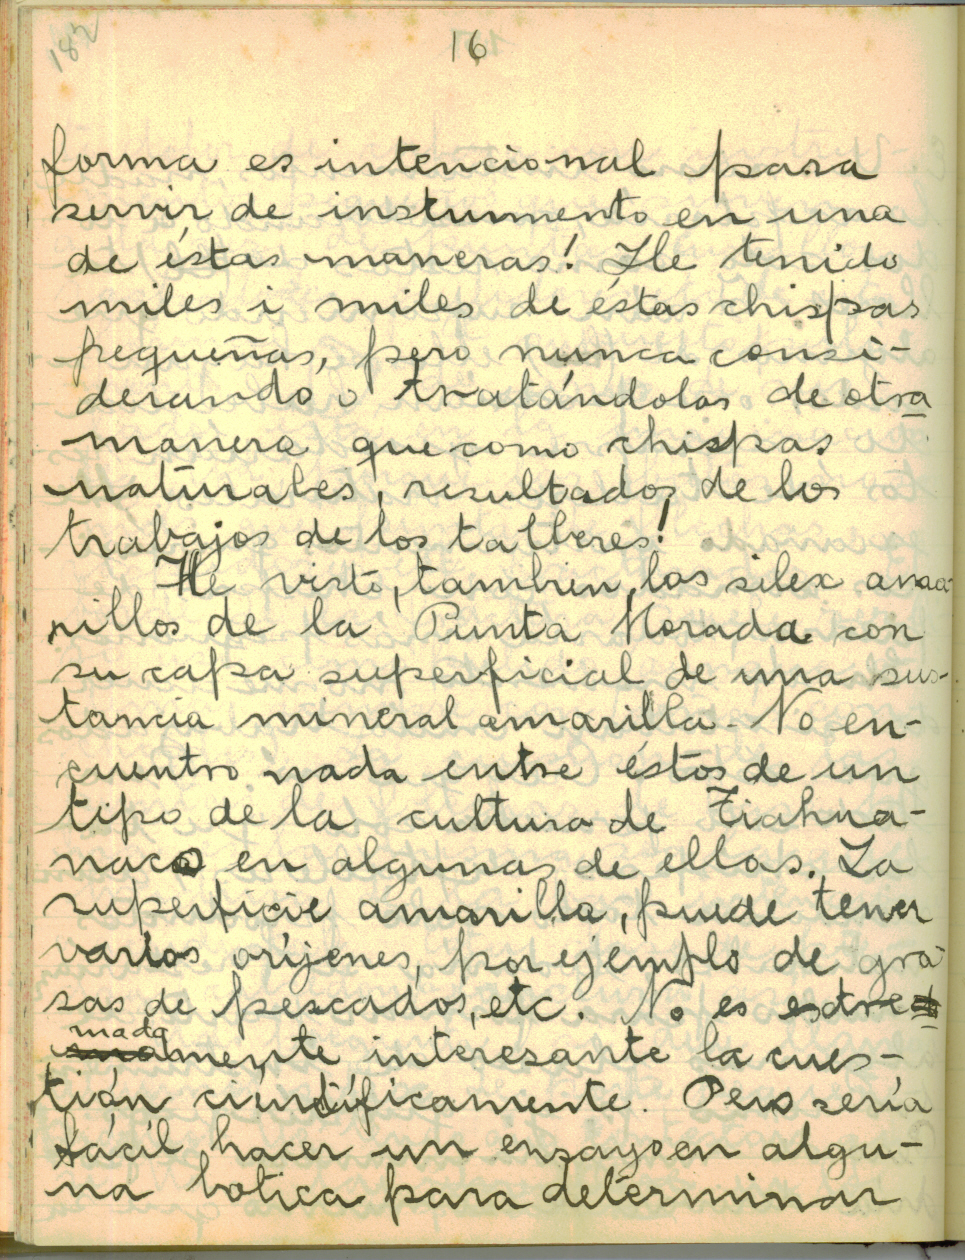 182
16
forma es intencional para
servir de instrumento en una
de éstas maneras! He tenido
miles i miles de éstas chispas
pequeñas, pero nunca consi-
derando o tratándolas de otra
manera que como chispas
naturales, resultados de los
trabajos de los talleres!
He visto, tambien, los silex ama-
rillos de la Punta Morada con
su capa superficial de una sus-
tancia mineral amarilla. No en-
cuentro nada entre éstos de un
tipo de la cultura de Tiahua-
naco en algunas de ellas. La
superficie amarilla, puede tener
varios oríjenes, por ejemplo de gra-
sas de pescados, etc. No es estre-
mada
mente interesante la cues-
tión ciéntíficamente. Pero sería
fácil hacer un ensayo en algu-
na botica para determinar